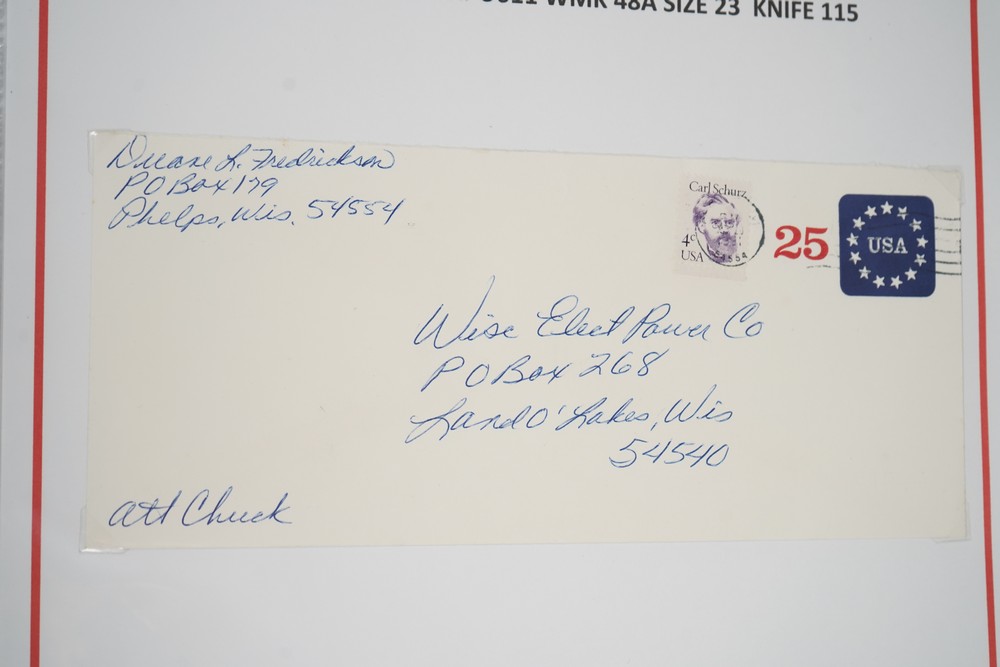 WMK 48A SIZE 23 KNIFE 115
Duane L. Fredrickson
PO Box 179
Phelps, Wis. 54554
Carl Schurz
4c
USA
25
USA
Wisc Elect Power Co
PO Box 268
Land O' Lakes, Wis
54540
att Chuck